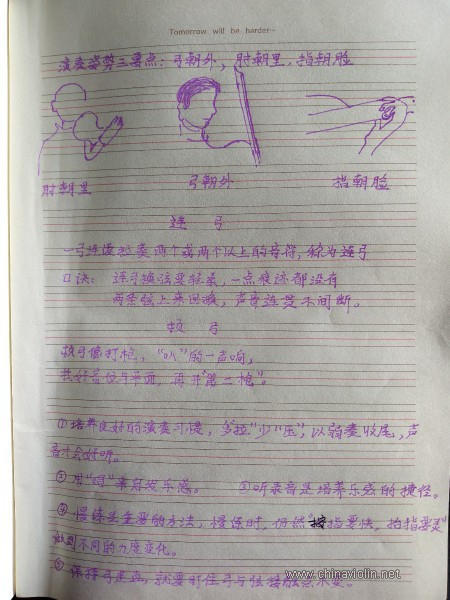 Tomorrow will be harder~
演奏姿势三要点：弓朝外，肘朝里，指朝脸
肘朝里 弓朝外 指朝脸
连弓
一弓连续拉奏两个或两个以上的音符，称为连弓
口诀：连弓换弦要轻柔，一点痕迹都没有
两条弦上来回颤，声音连贯不间断。
顿弓
顿弓像打枪，“叭”的一声响，
找好音位与平面，再开“第二枪”。
①培养良好的演奏习惯，多“拉”少“压”，以弱奏收尾，声
音才会好听。
②用“唱”来启发乐感。 ③听录音是培养乐感的捷径。
④慢练是重要的方法，慢练时，仍然“按指要快，抬指要灵”
做到不同的力度变化。
⑤保持弓走直，就要盯住弓与弦接触点不变。
www.chinaviolin.net